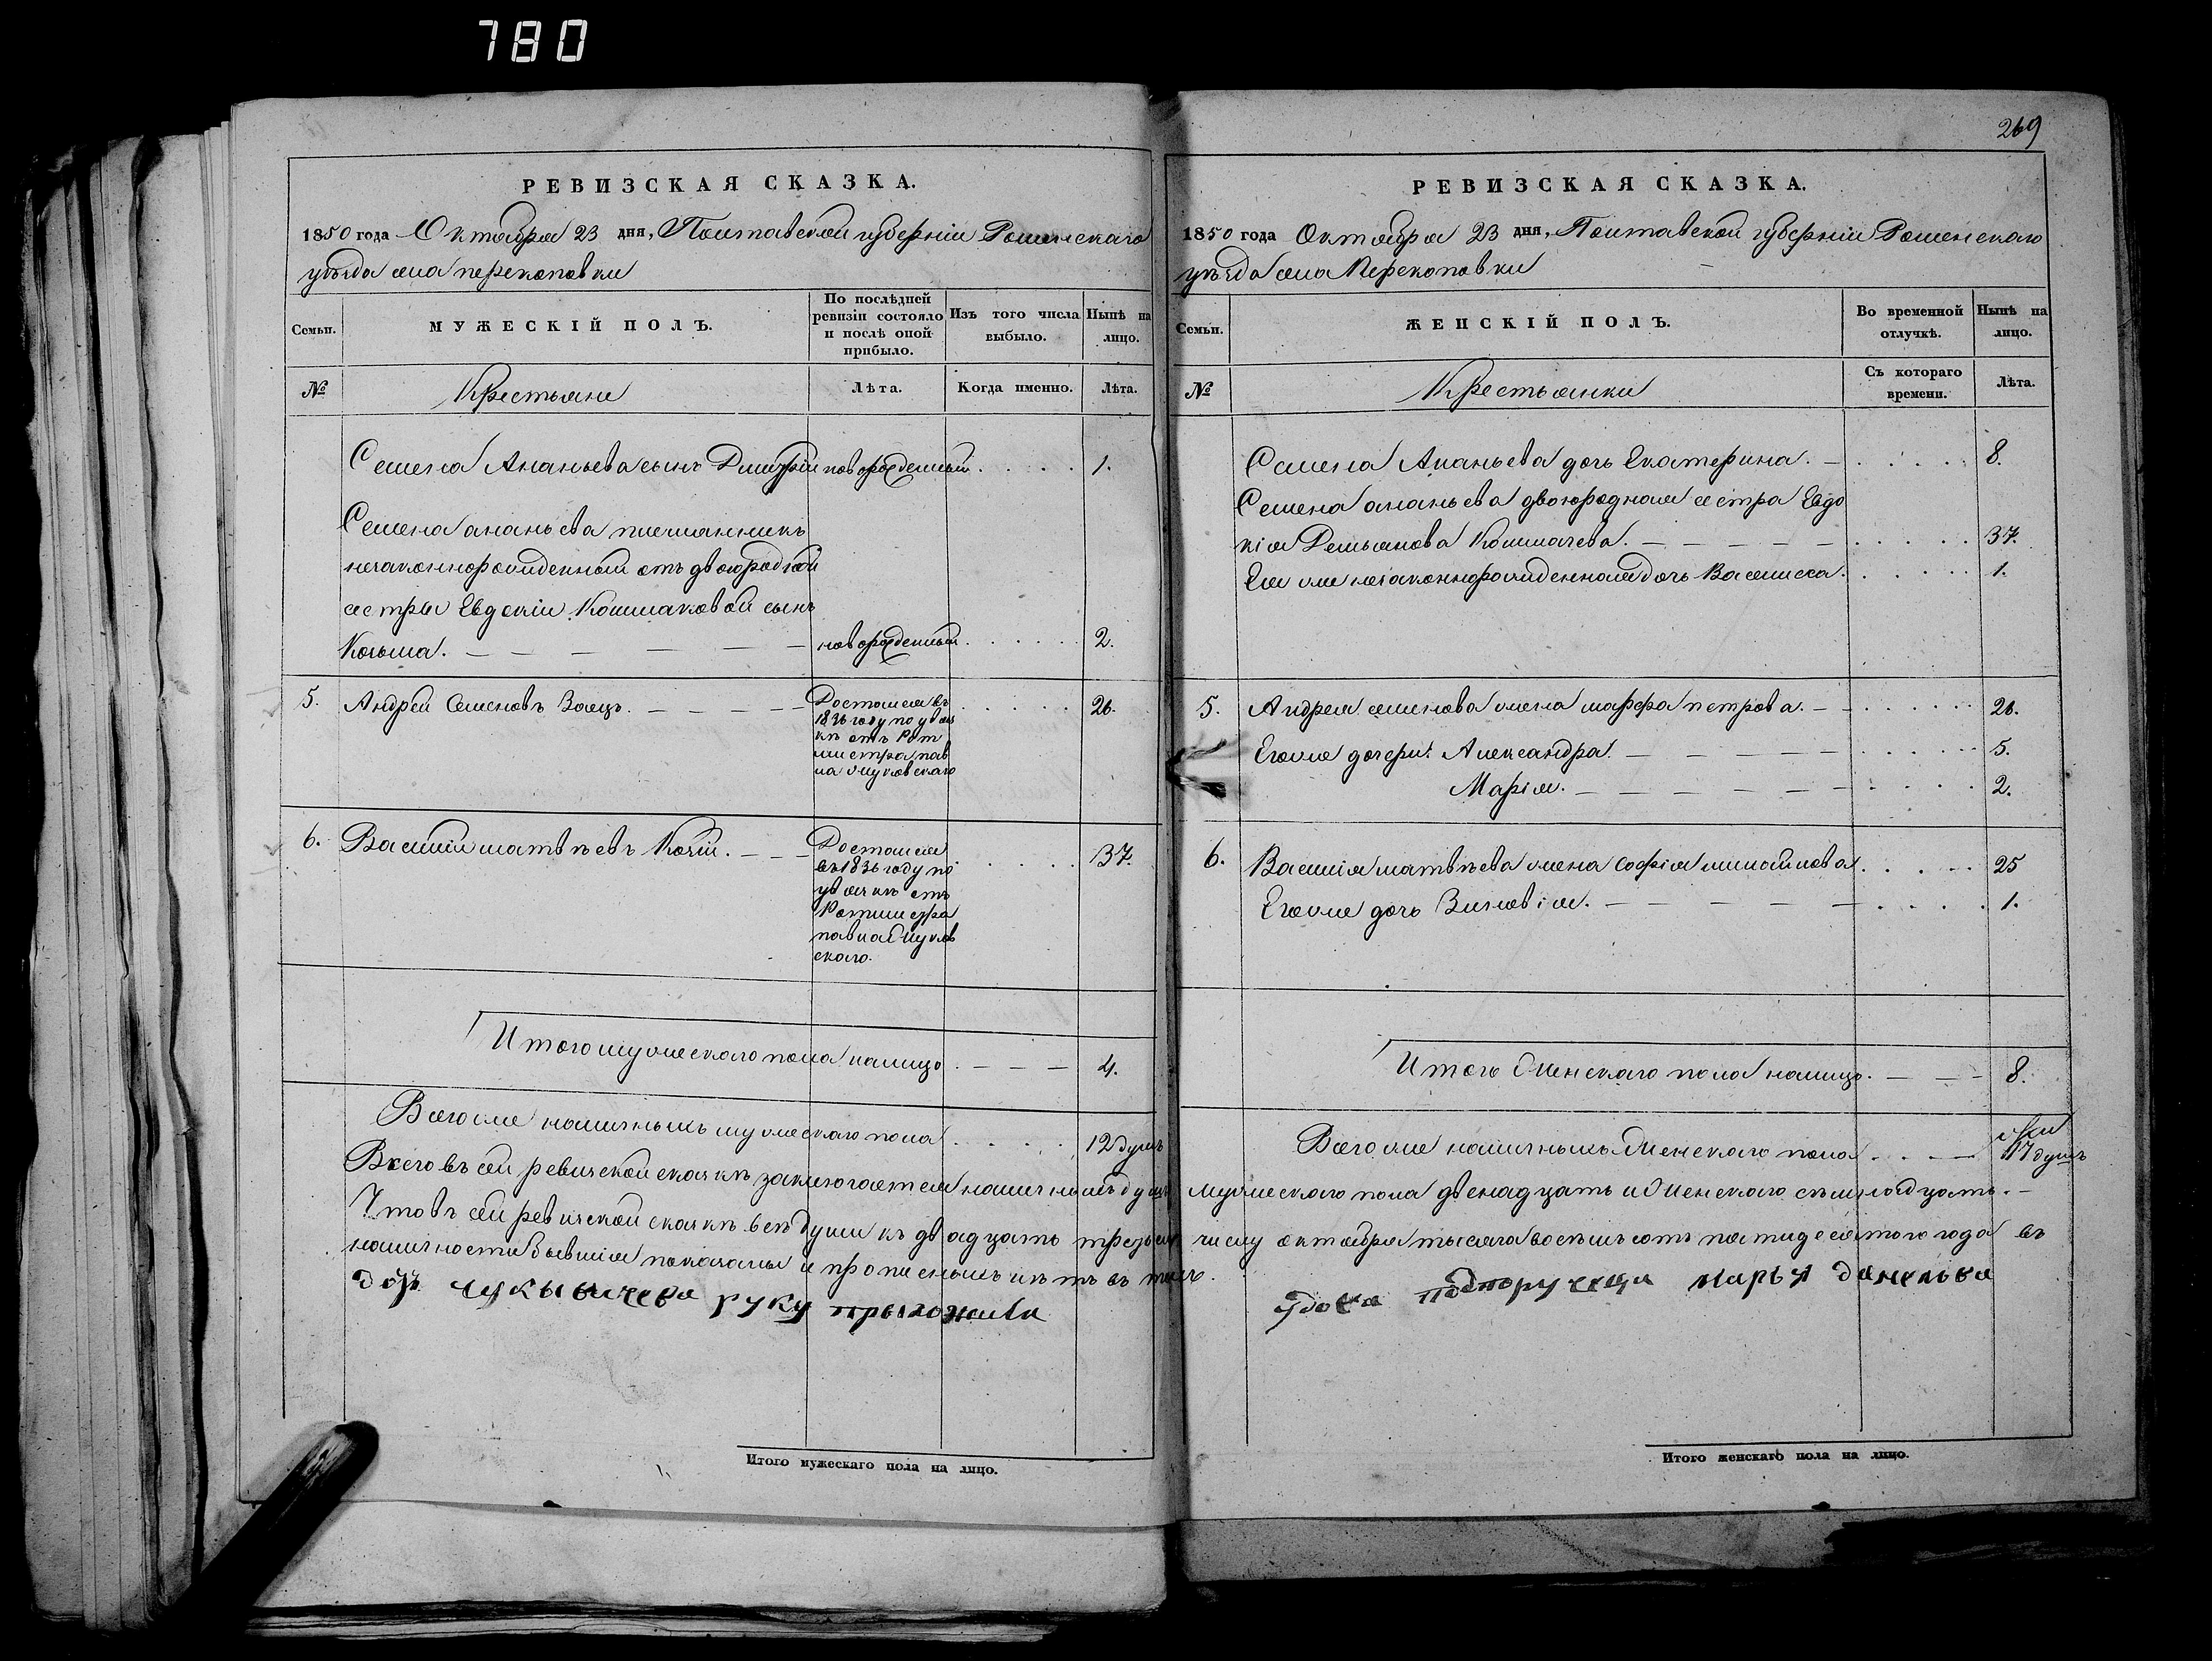 780
РЕВИЗСКАЯ СКАЗКА.
1850 года Октября 23 дня, Полтавской губерніи Роменскаго
уѣзда села перекоповки
Семьи.
МУЖЕСКІЙ ПОЛЪ.
По послѣдней
ревизіи состояло
и послѣ оной
прибыло.
Изъ того числа
выбыло.
Нынѣ на
лицо.
№
Крестьяне
Лѣта.
Когда именно.
Лѣта.
Семена Ананьева сынъ Дмитрій новорожденный . . . . 1.
Семена ананьева племянникъ
незаконнорожденный отъ двоюродной
сестры Евдокіи Колмаковой сынъ
Козьма. — — — — — — новорожденный . . . . . 2.
5. Андрей Семеновъ Заецъ. — — — — Достался въ . . . . . 26.
1836 году по уваз
кѣ отъ Рот
мистра пав
ла жуковскаго
6. Василій матвѣевъ Козій. — — — Достался . . . . . 37.
въ 1836 году по
увазкѣ отъ
Ротмистра
павла Жуков
скаго.
Итого мужескаго пола налицо . — — — 4.
Всегоже наличныхъ мужескаго пола . . . . . 12 душъ
Всего въ сей ревизской сказкѣ заключается наличныхъ душъ
Что въ сей ревизской сказкѣ всѣ души къ двадцать третьему
наличности бывшія показаны и прописныхъ нѣтъ въ томъ.
руку прыложила
Итого мужескаго пола на лицо.
269
РЕВИЗСКАЯ СКАЗКА.
1850 года Октября 23 дня, Полтавской губерніи Роменскаго
уѣзда села Перекоповки
Семьи.
ЖЕНСКІЙ ПОЛЪ.
Во временной
отлучкѣ.
Нынѣ на
лицо.
№
Крестьянки
Съ котораго
времени.
Лѣта.
Семена Ананьева дочь Екатерина. — . . . . . 8.
Семена ананьева двоюродная сестра Евдо
кія Демьянова Колмачева. — — — — — . . . . . 37.
Ея же незаконнорожденная дочь Василиса. . . . . 1.
5. Андрея семенова жена марфа петрова. — . . . . . 26.
Егоже дочери: Александра. — — — — . . . . . 5.
Марія. — — — — — — . . . . 2.
6. Василія матвѣева жена Софія михайлова . . . . . 25
Егоже дочь Зиновія. — — — — — . . . . . 1.
Итого Женскаго пола налицо. — — — 8.
Всегоже наличныхъ Женскаго пола . . . — 17 душъ
мужескаго пола двенадцать и Женскаго семьнадцать. —
числу октября тысяча восемьсотъ пятидесятого года въ
вдова подпоручеца марья данелова
Итого женскаго пола на лицо.